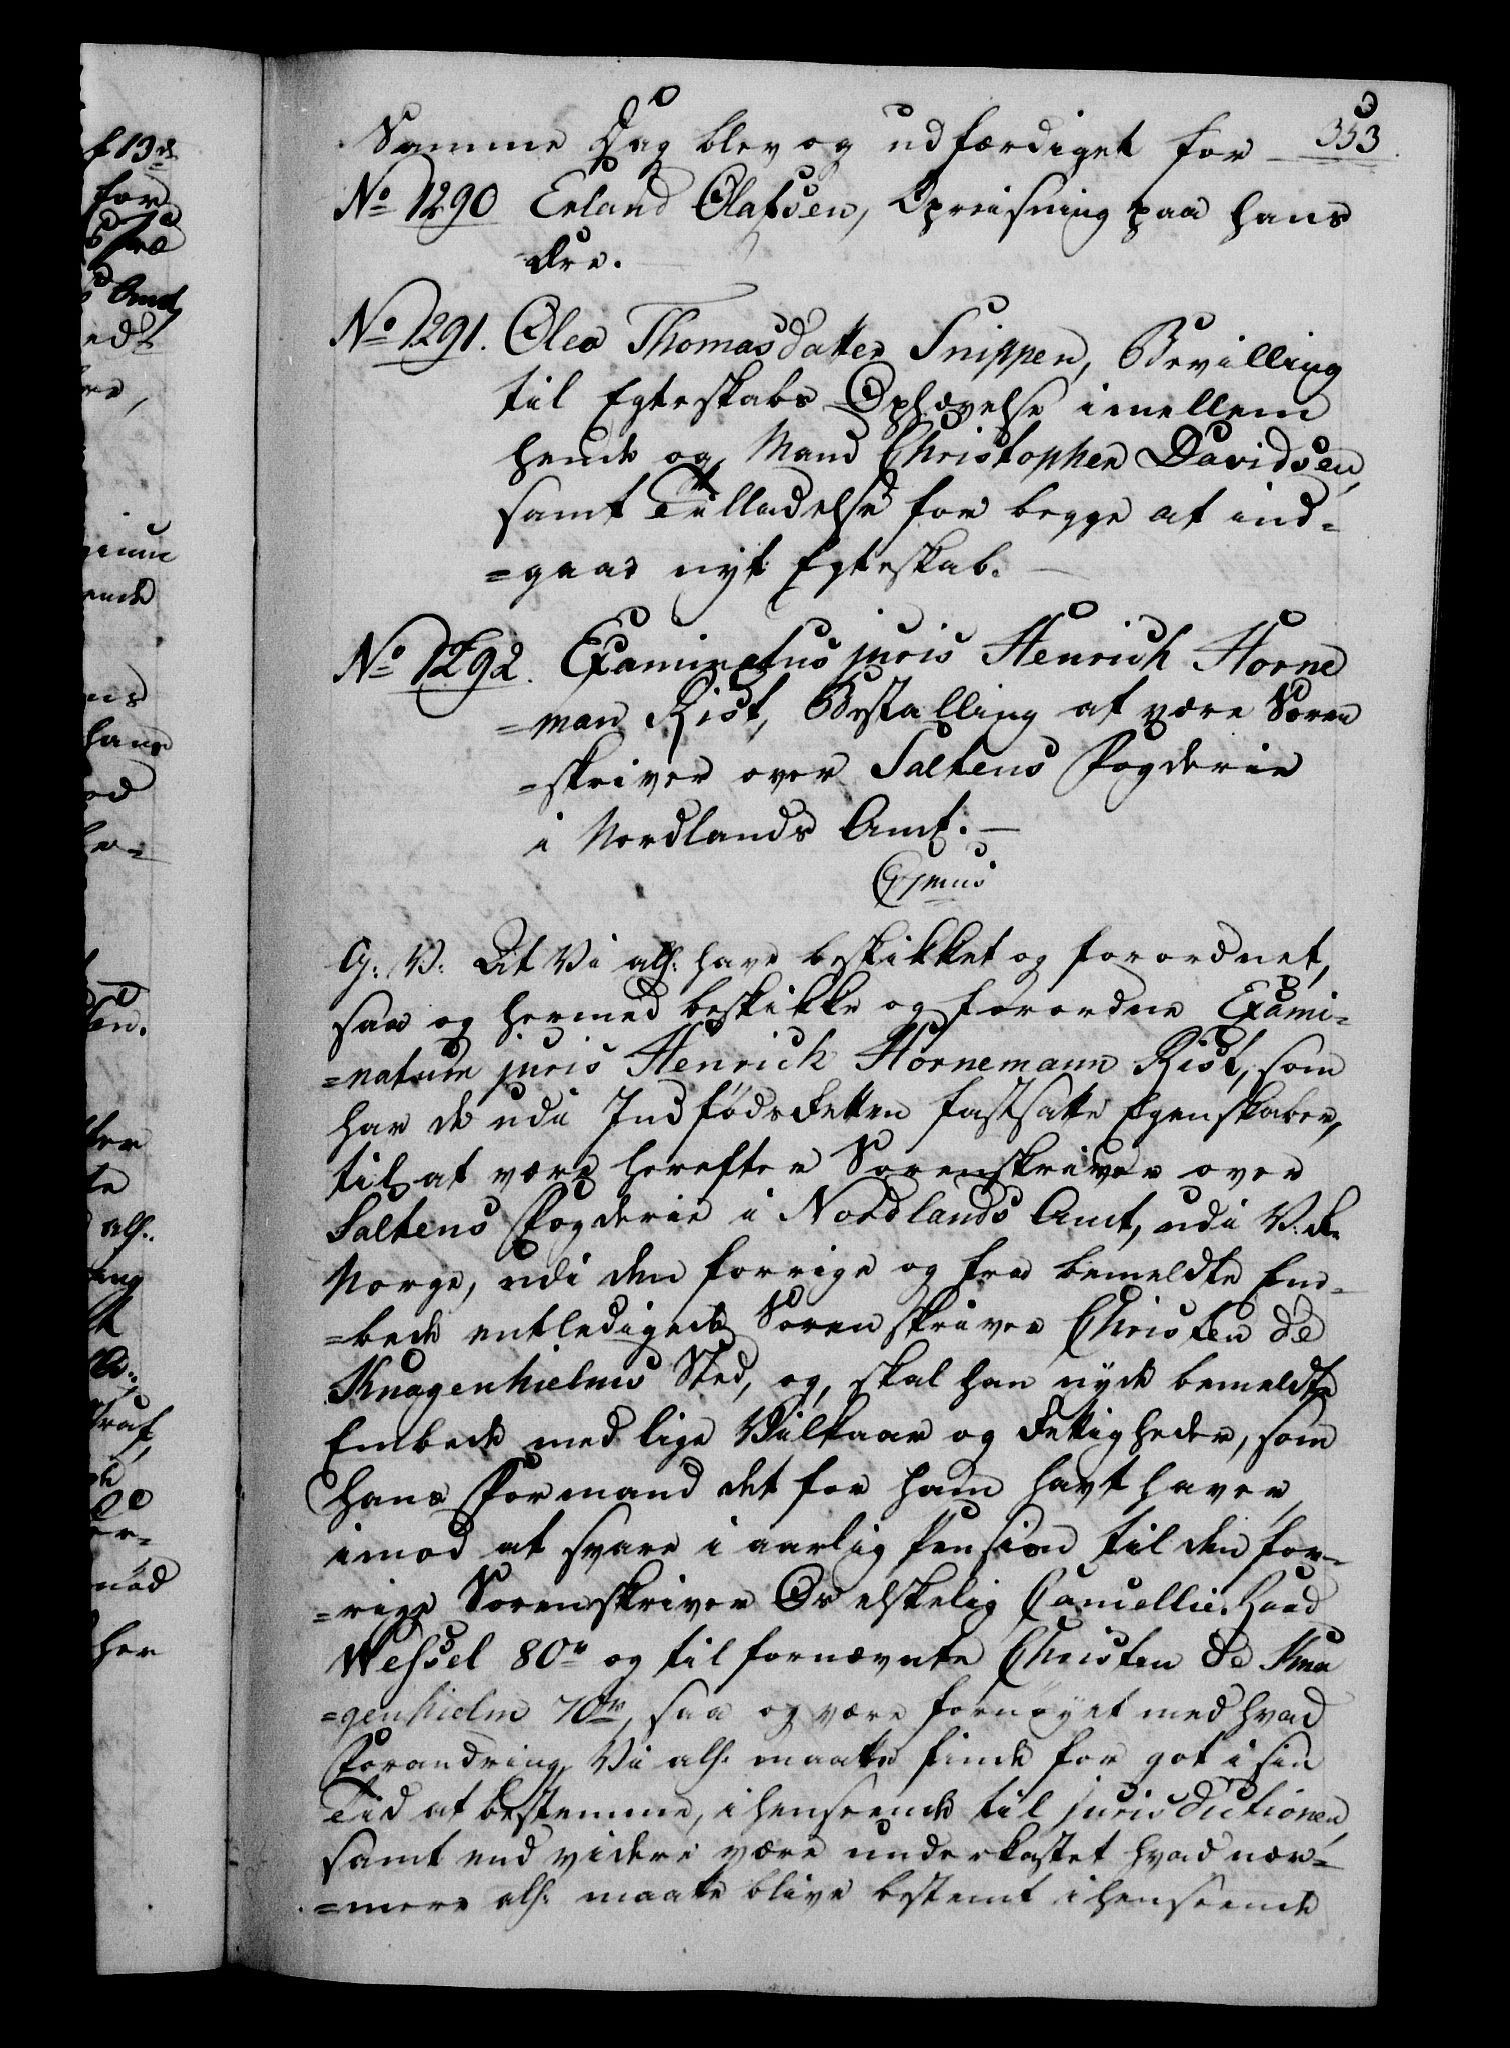 Samme Dag blev og udfærdiget for 353
No 1290 Erland Olafsen, Opreisning paa hans
Ære.
No 1291. Olea Thomasdatter Snippen, Bevilling
til Egteskabs Ophævelse imellem
hende og Mand Christopher Davidsen,
samt Tilladelse for begge at ind=
=gaae nyt Egteskab.
No 1292. Examinatus juris Henrich Horne
=man Rist, Bestalling at være Soren
=skriver over Saltens Fogderie
i Nordlands Amt.
G: V: At Vi alh: have beskikket og forordnet,
saa og hermed beskikke og forordne Exami=
=natum juris Henrich Hornemann Rist, som
har de udi Indføds Retten fastsatte Egenskaber,
til at være herefter Sorenskriver over
Saltens Fogderie i Nordlands Amt, udi V: R:
Norge, udi den forrige og fra bemeldte Em=
=bede entledigede Sorenskriver Christen de
Knagenhielms Sted, og skal han nyde bemeldte
Embede med lige Vilkaar og Rettigheder, som
hans Formand det for ham havt haver,
imod at svare i aarlig Pension til den for=
=rige Sorenskriver Os elskelig Cancellie Raad
Wessel 80 r og til fornævnte Christen de Kna
=genhielm 70 r, saa og være fornøyet med hvad
Forandring Vi alh: maatte finde for got i sin
Tid at bestemme, i henseende til jurisdictionen,
samt end videre være underkastet hvad nær=
=mere alh: maatte blive bestemt i henseende